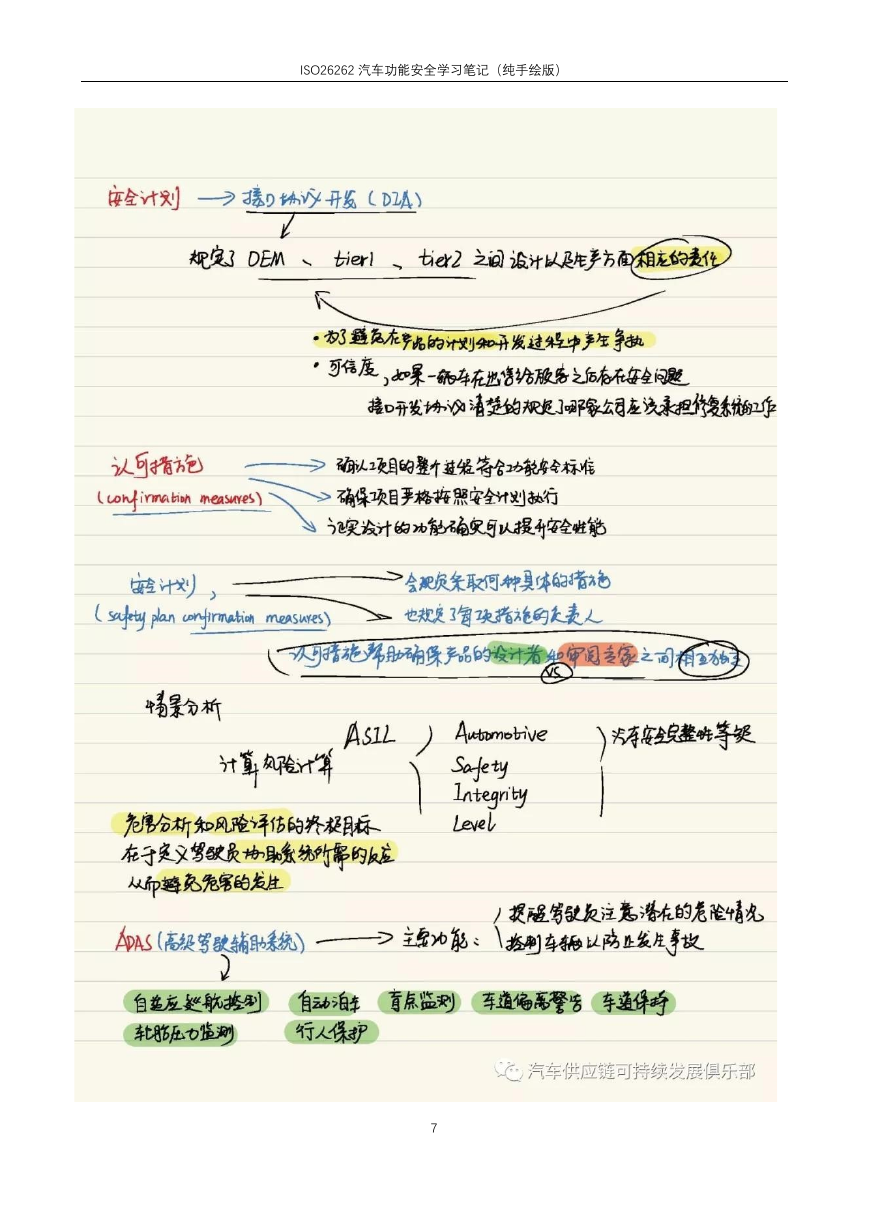 ISO26262 汽车功能安全学习笔记（纯手绘版）
安全计划 → 接口协议开发（DIA）
规定了 OEM 、 tier1 、 tier2 之间设计以及生产方面相应的责任
· 为了避免在产品的计划和开发过程中产生争执
· 可信度，如果一辆车在出售给顾客之后存在安全问题
接口开发协议清楚的规定了哪家公司应该承担修复系统的工作
认可措施 → 确认项目的整个过程符合功能安全标准
(confirmation measures) → 确保项目严格按照安全计划执行
证实设计的功能确实可以提升安全性能
安全计划， → 会规定采取何种具体的措施
(safety plan confirmation measures) 也规定了每项措施的负责人
认可措施帮助确保产品的设计者和审阅专家之间相互独立
VS
情景分析
ASIL Automotive 汽车安全完整性等级
计算风险计算 Safety
Integrity
Level
危害分析和风险评估的终极目标
在于定义驾驶员协助系统所需的反应
从而避免危害的发生
提醒驾驶员注意潜在的危险情况
ADAS（高级驾驶辅助系统） → 主要功能： 控制车辆以防止发生事故
自适应巡航控制 自动泊车 盲点监测 车道偏离警告 车道保持
轮胎压力监测 行人保护
汽车供应链可持续发展俱乐部
7